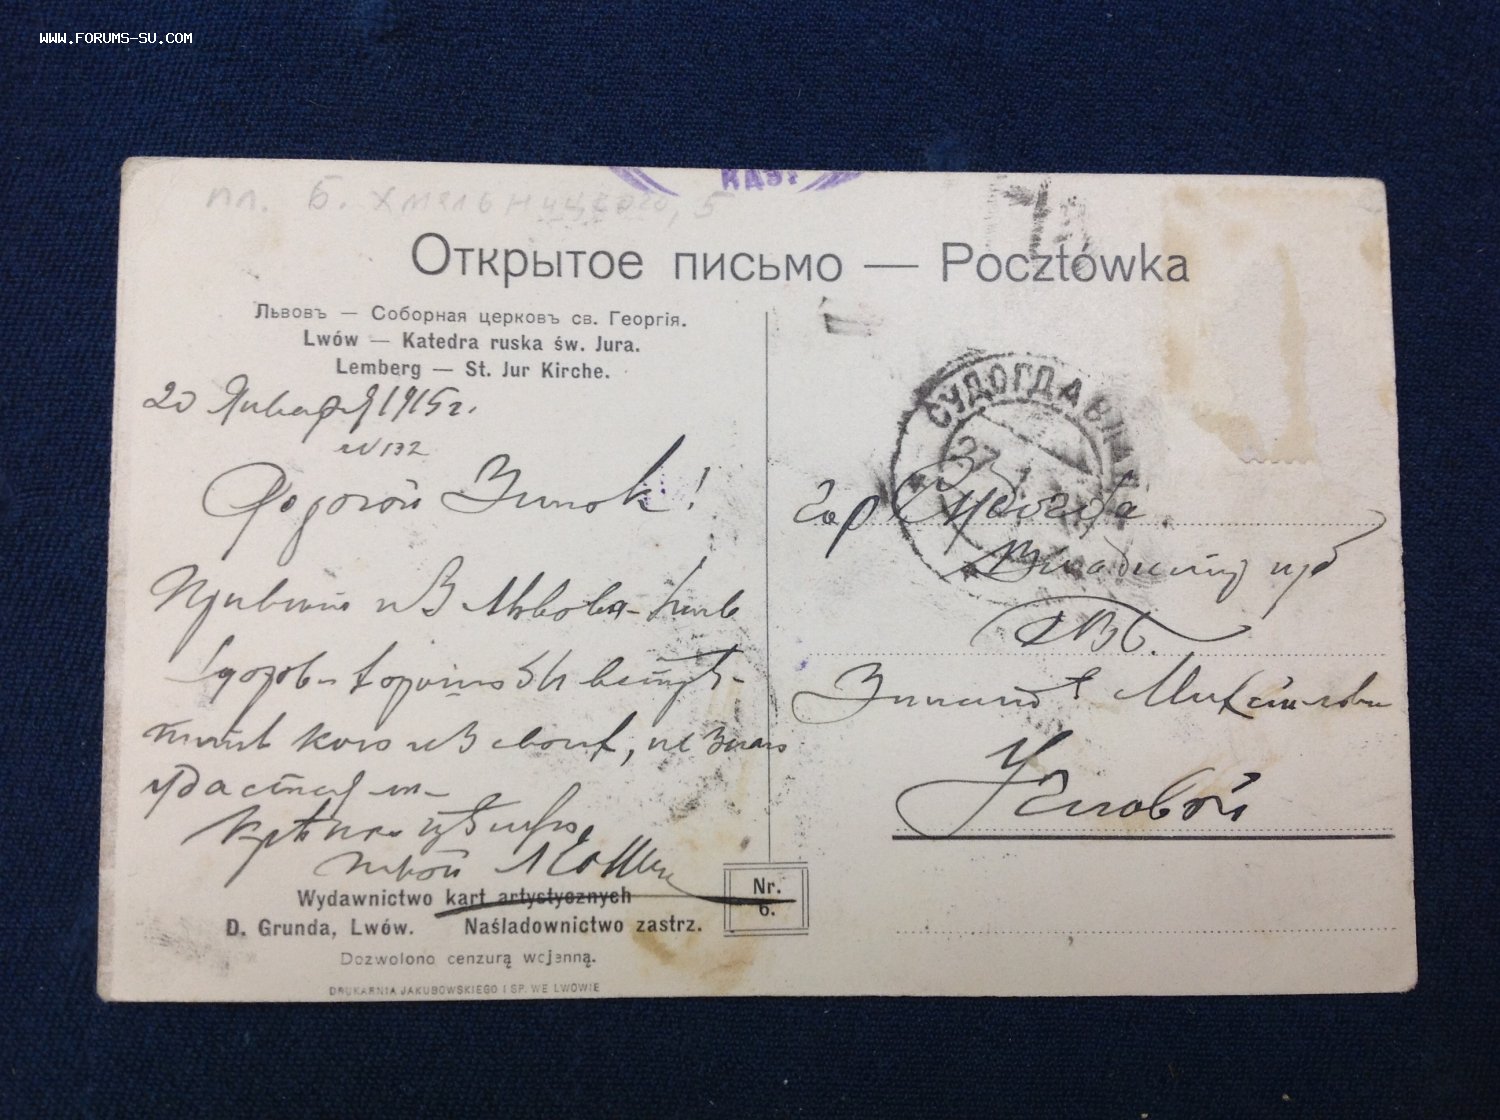 WWW.FORUMS-SU.COM
пл. Б. Хмельницкого, 5
Открытое письмо — Pocztówka
Львовъ — Соборная церковъ св. Георгія.
Lwów — Katedra ruska św. Jura.
Lemberg — St. Jur Kirche.
20 Января 1915 г.
№ 132
Дорогой Зинок!
Привет из Львова
здоров
кого из своих, не знаю
удастся ли
Крѣпко цѣлую
твой
Wydawnictwo kart artystycznych
D. Grunda, Lwów. Naśladownictwo zastrz.
Dozwolono cenzurą wojenną.
DRUKARNIA JAKUBOWSKIEGO I SP. WE LWOWIE
Nr.
6.
СУДОГДА ВЛАД
27 1
Гор Судогда
Владимир губ
ЕВБ.
Зинаидѣ Михайловне